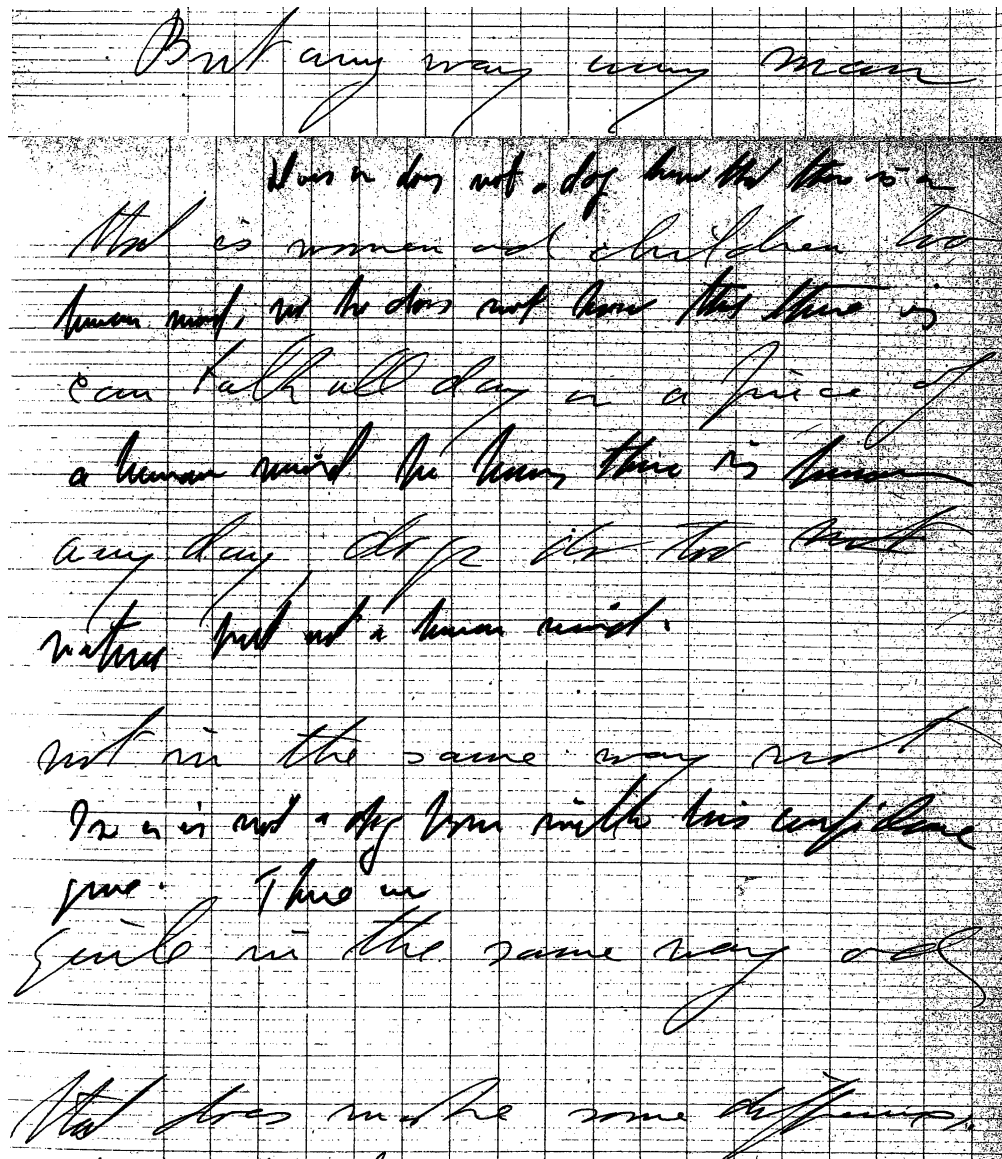 But any way any man
Does or does not a dog know that there is a
that is women and children too
human mind, no he does not know that there is
can talk all day or a piece of
a human mind he knows there is human
any day dogs do too
nature but not a human mind.
not in the same way not
is not a dog his confidence
There
quite in the same way and
that does make some difference.